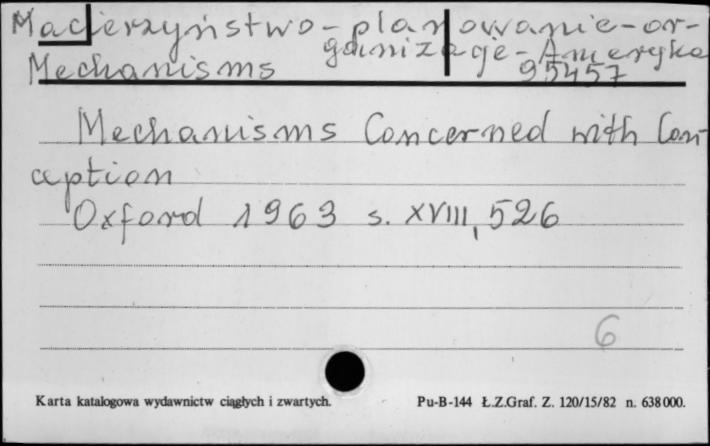 Macierzyństwo-planowanie-or-
ganizacje-Ameryka
Mechanisms 95457
Mechanisms Concerned with Con-
ception
Oxford 1963 s. XVIII, 526
6
Karta katalogowa wydawnictw ciągłych i zwartych. Pu-B-144 Ł.Z.Graf. Z. 120/15/82 n. 638000.